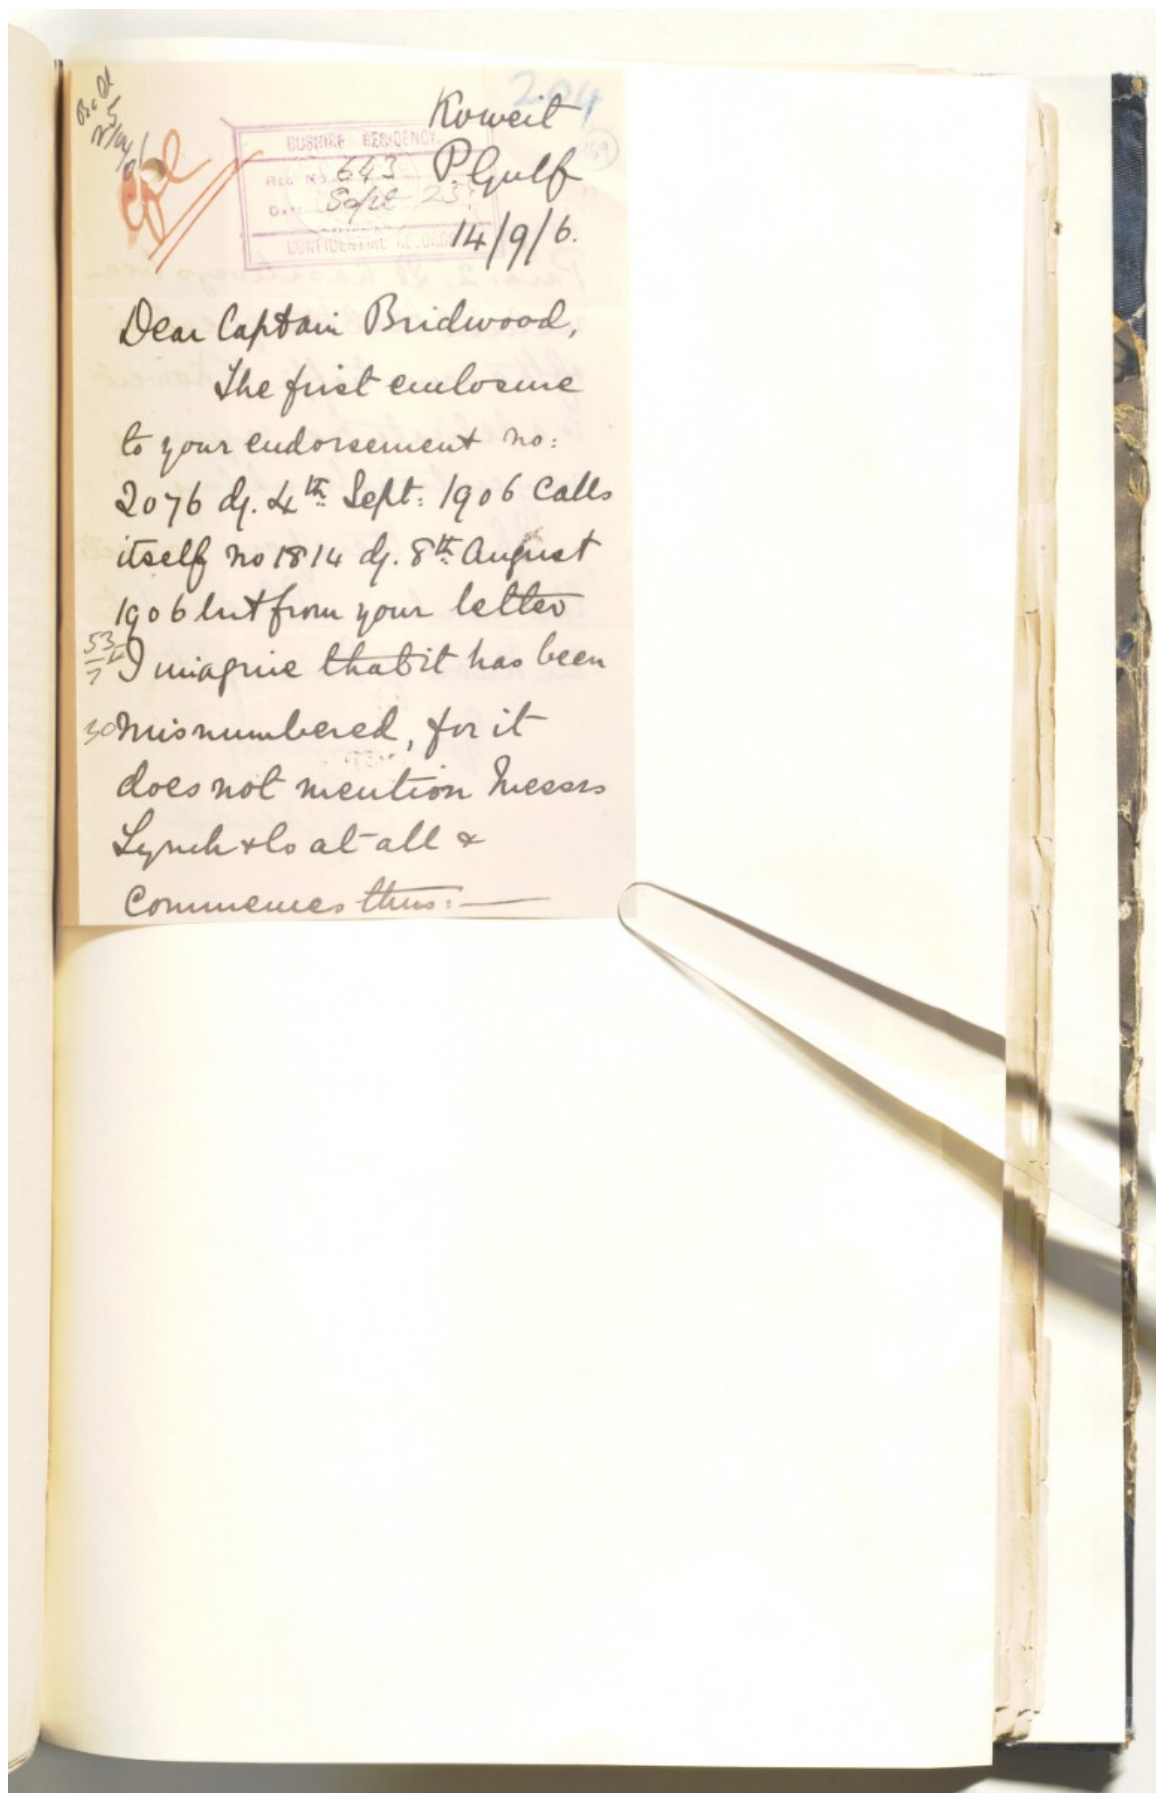 204
Koweit
P. Gulf
14/9/6.
BUSHIRE RESIDENCY
REG. No. 643
Date Sept 23
CONFIDENTIAL RECORDS
Dear Captain Bridwood,
The first enclosure
to your endorsement no:
2076 dj. 4th Sept: 1906 calls
itself no 1814 dj. 8th August
1906 but from your letter
I imagine that it has been
misnumbered, for it
does not mention Messrs
Lynch & Co at all &
commences thus:—